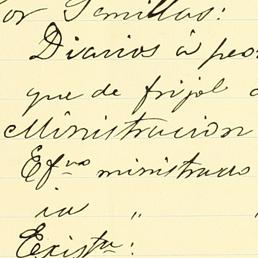 or Semillas:
Diarios á pes
que de frijol
Ministracion
Efvos ministrado
id " "
Exista: